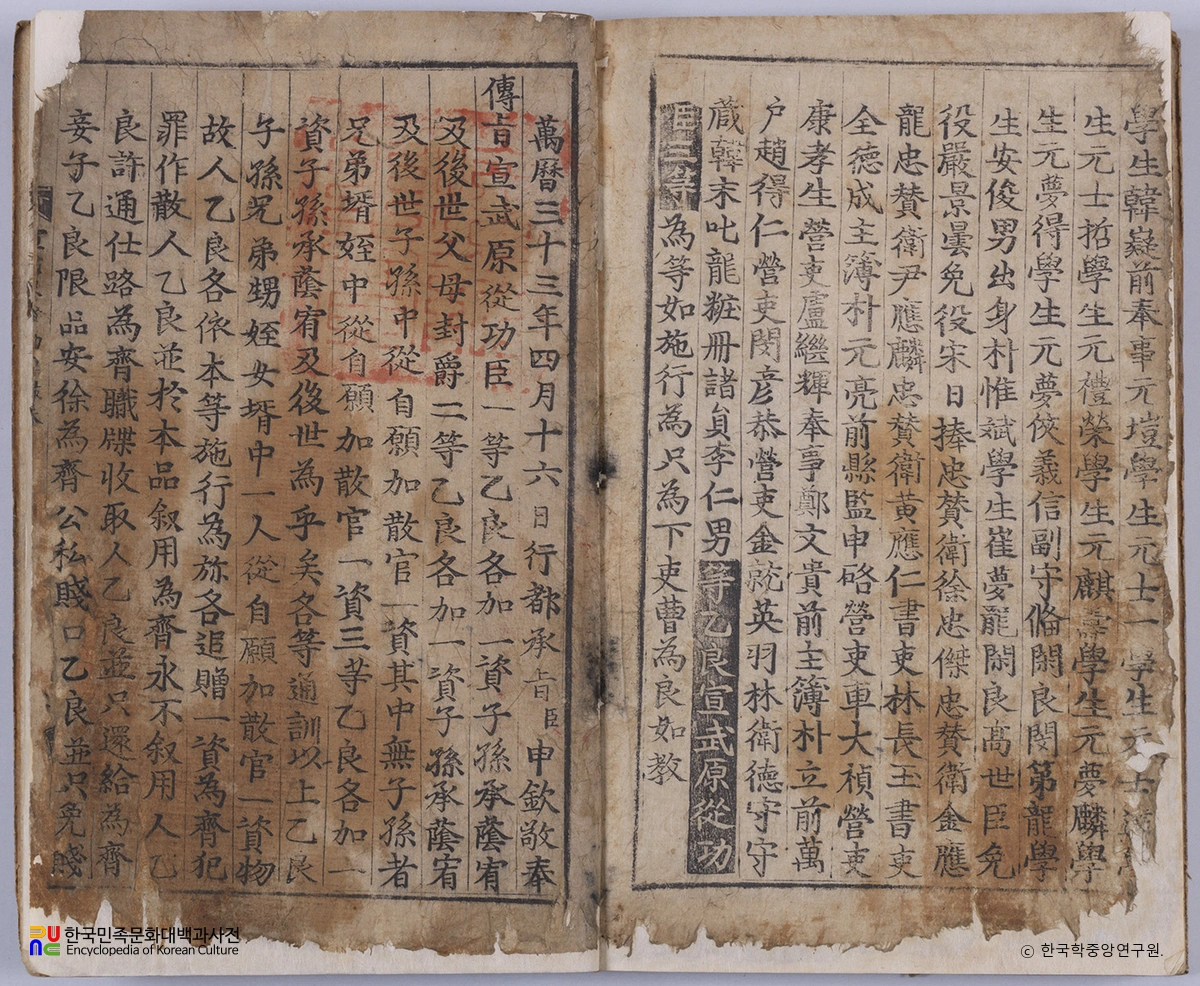 學生韓嶷前奉事元塏學生元士一學生元士
生元士哲學生元禮榮學生元麒壽學生元夢麟學
生元夢得學生元夢俠義信副守脩閑良閔第龍學
生安俊男出身朴惟斌學生崔夢龍閑良高世臣免
役嚴景曇免役宋日捧忠贊衛徐忠傑忠贊衛金應
龍忠贊衛尹應麟忠贊衛黃應仁書吏林長玉書吏
全德成主簿朴元亮前縣監申硌營吏車大禎營吏
康孝生營吏盧繼輝奉事鄭文貴前主簿朴立前萬
户趙得仁營吏閔彦恭營吏金兢英羽林衛德守守
蔵韓末叱龍粧冊諸貟李仁男等乙良宣武原從功
臣三等為等如施行為只為下吏曹為良如教
萬曆三十三年四月十六日行都承旨臣申欽敬奉
傳旨宣武原從功臣一等乙良各加一資子孫承蔭宥
及後世父母封爵二等乙良各加一資子孫承蔭宥
及後世子孫中從自願加散官一資其中無子孫者
兄弟壻姪中從自願加散官一資三等乙良各加一
資子孫承蔭宥及後世為乎矣各等通訓以上乙良
子孫兄弟甥姪女壻中一人從自願加散官一資物
故人乙良各依本等施行為旀各追贈一資為齊犯
罪作散人乙良並於本品叙用為齊永不叙用人乙
良許通仕路為齊職牒收取人乙良並只還給為齊
妾子乙良限品安徐為齊公私賤口乙良並只免賤
한국민족문화대백과사전
Encyclopedia of Korean Culture
ⓒ 한국학중앙연구원.